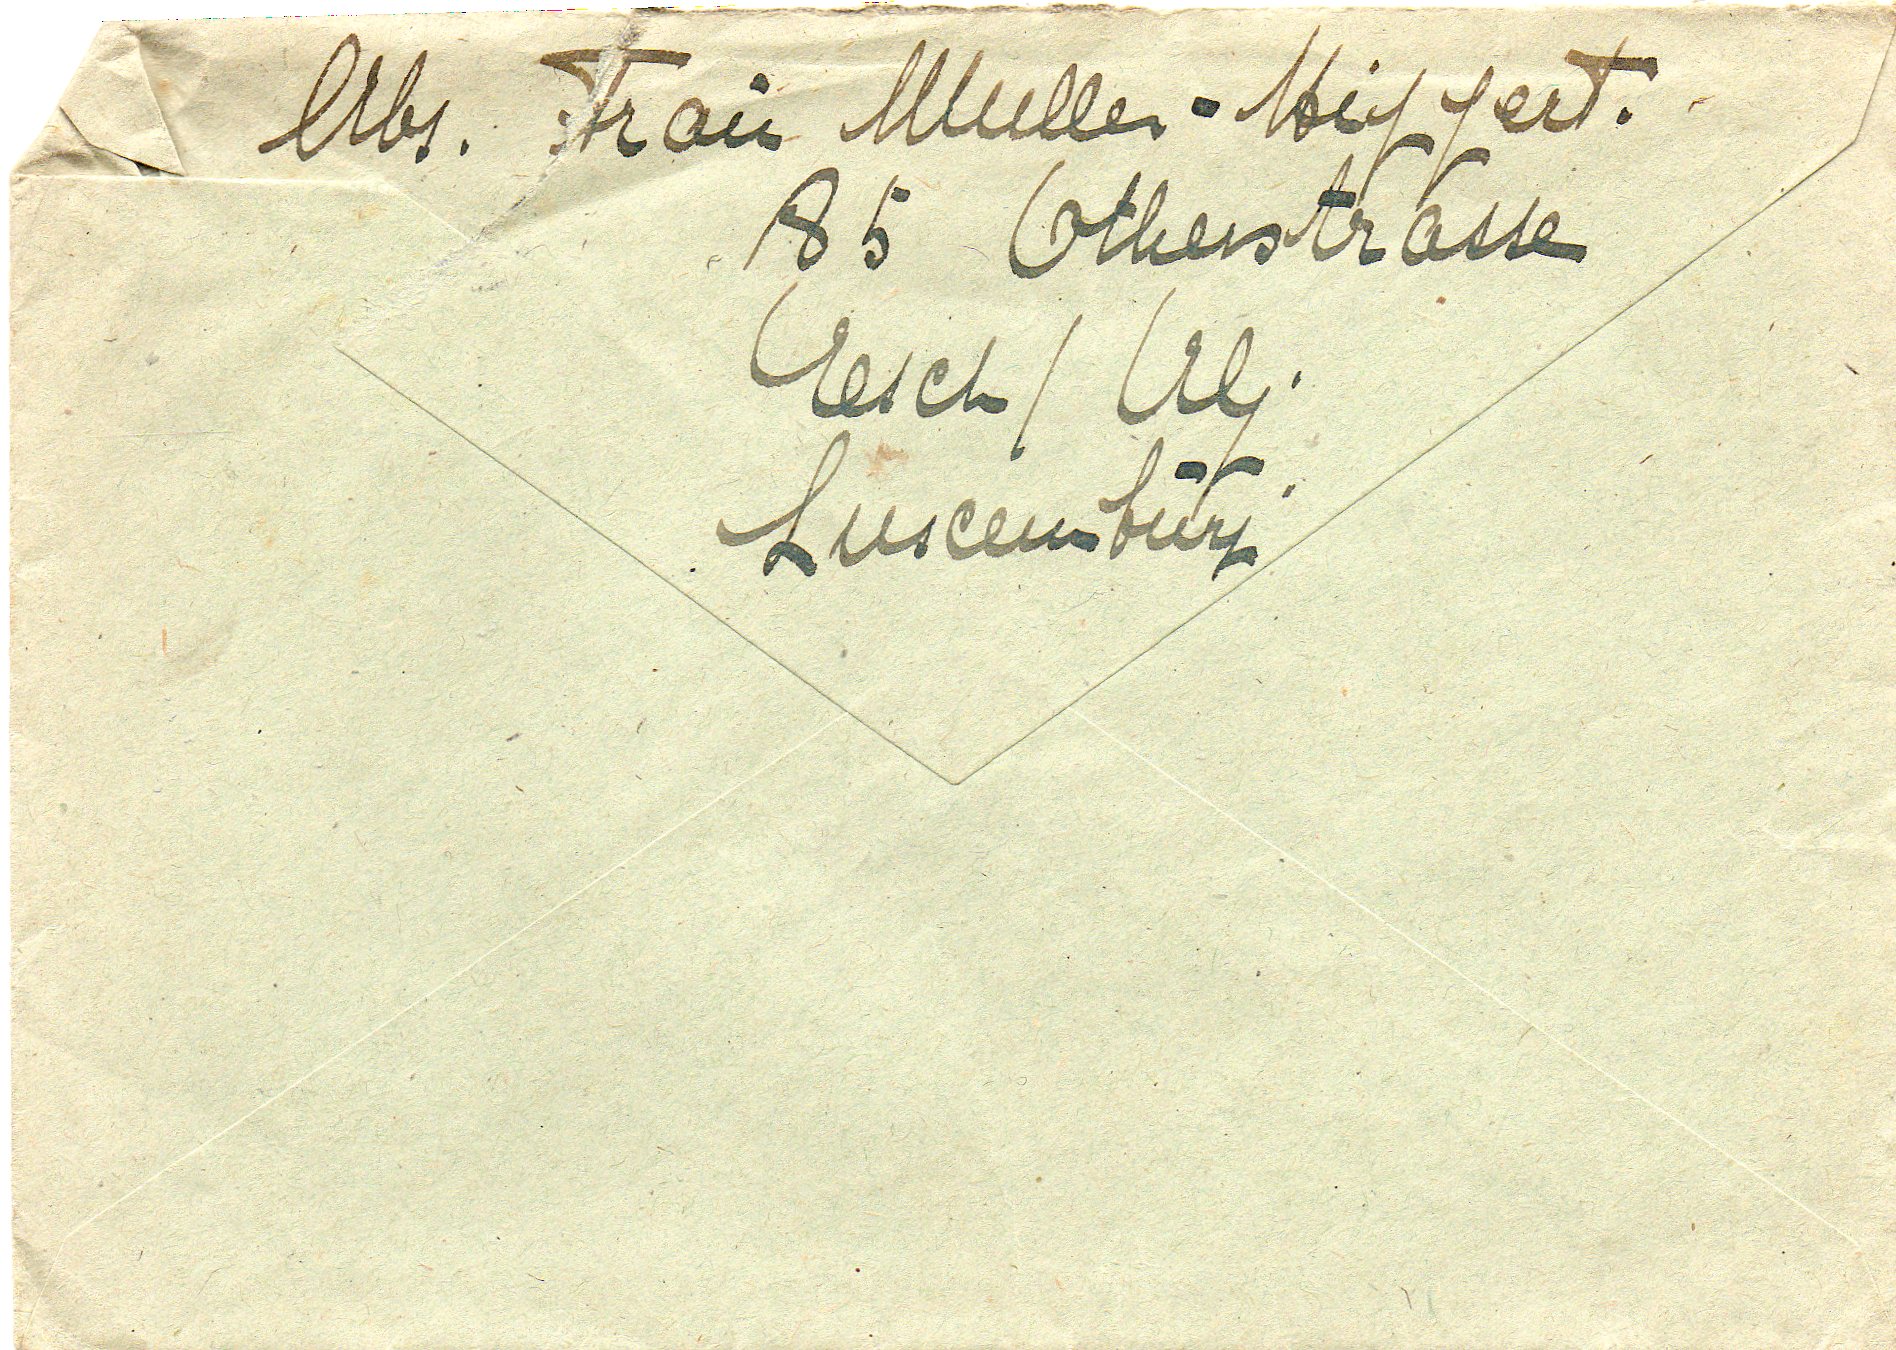 Abs. Frau Muller-Hippert.
85 Otherstrasse
Esch / Alz.
Luxemburg.